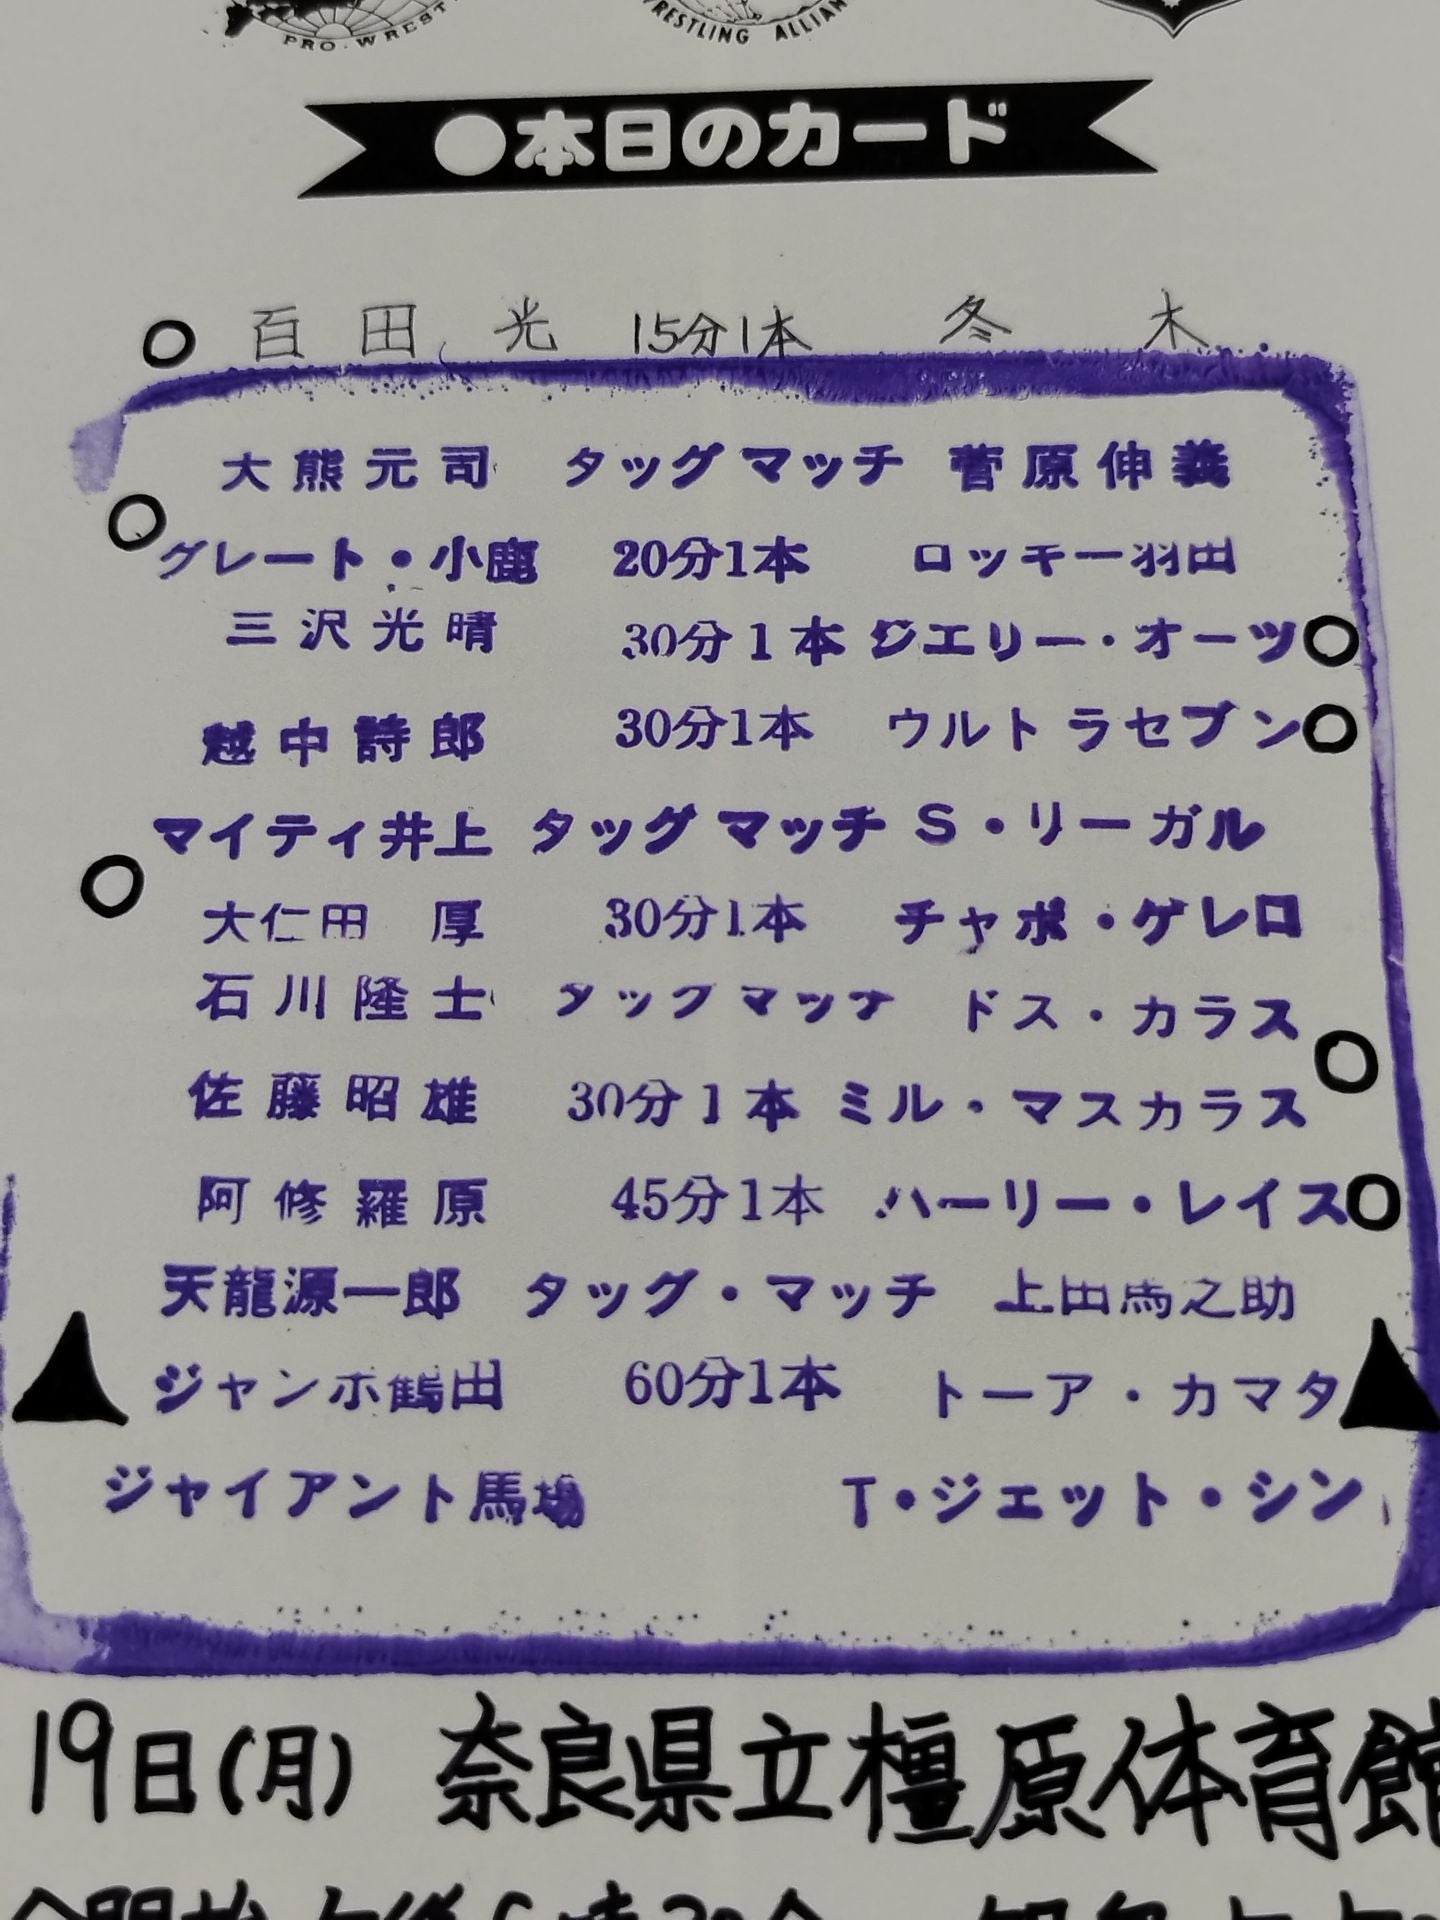 PRO.WREST
WRESTLING ALLIAN
●本日のカード
百田光 15分1本 冬木
大熊元司 タッグマッチ 菅原伸義
グレート・小鹿 20分1本 ロッキー羽田
三沢光晴 30分1本 ジエリー・オーツ
越中詩郎 30分1本 ウルトラセブン
マイティ井上 タッグマッチ S・リーガル
大仁田 厚 30分1本 チャボ・ゲレロ
石川隆士 タッグマッチ ドス・カラス
佐藤昭雄 30分1本 ミル・マスカラス
阿修羅原 45分1本 ハーリー・レイス
天龍源一郎 タッグ・マッチ 上田馬之助
ジャンボ鶴田 60分1本 トーア・カマタ
ジャイアント馬場 T・ジェット・シン
19日(月) 奈良県立橿原体育館